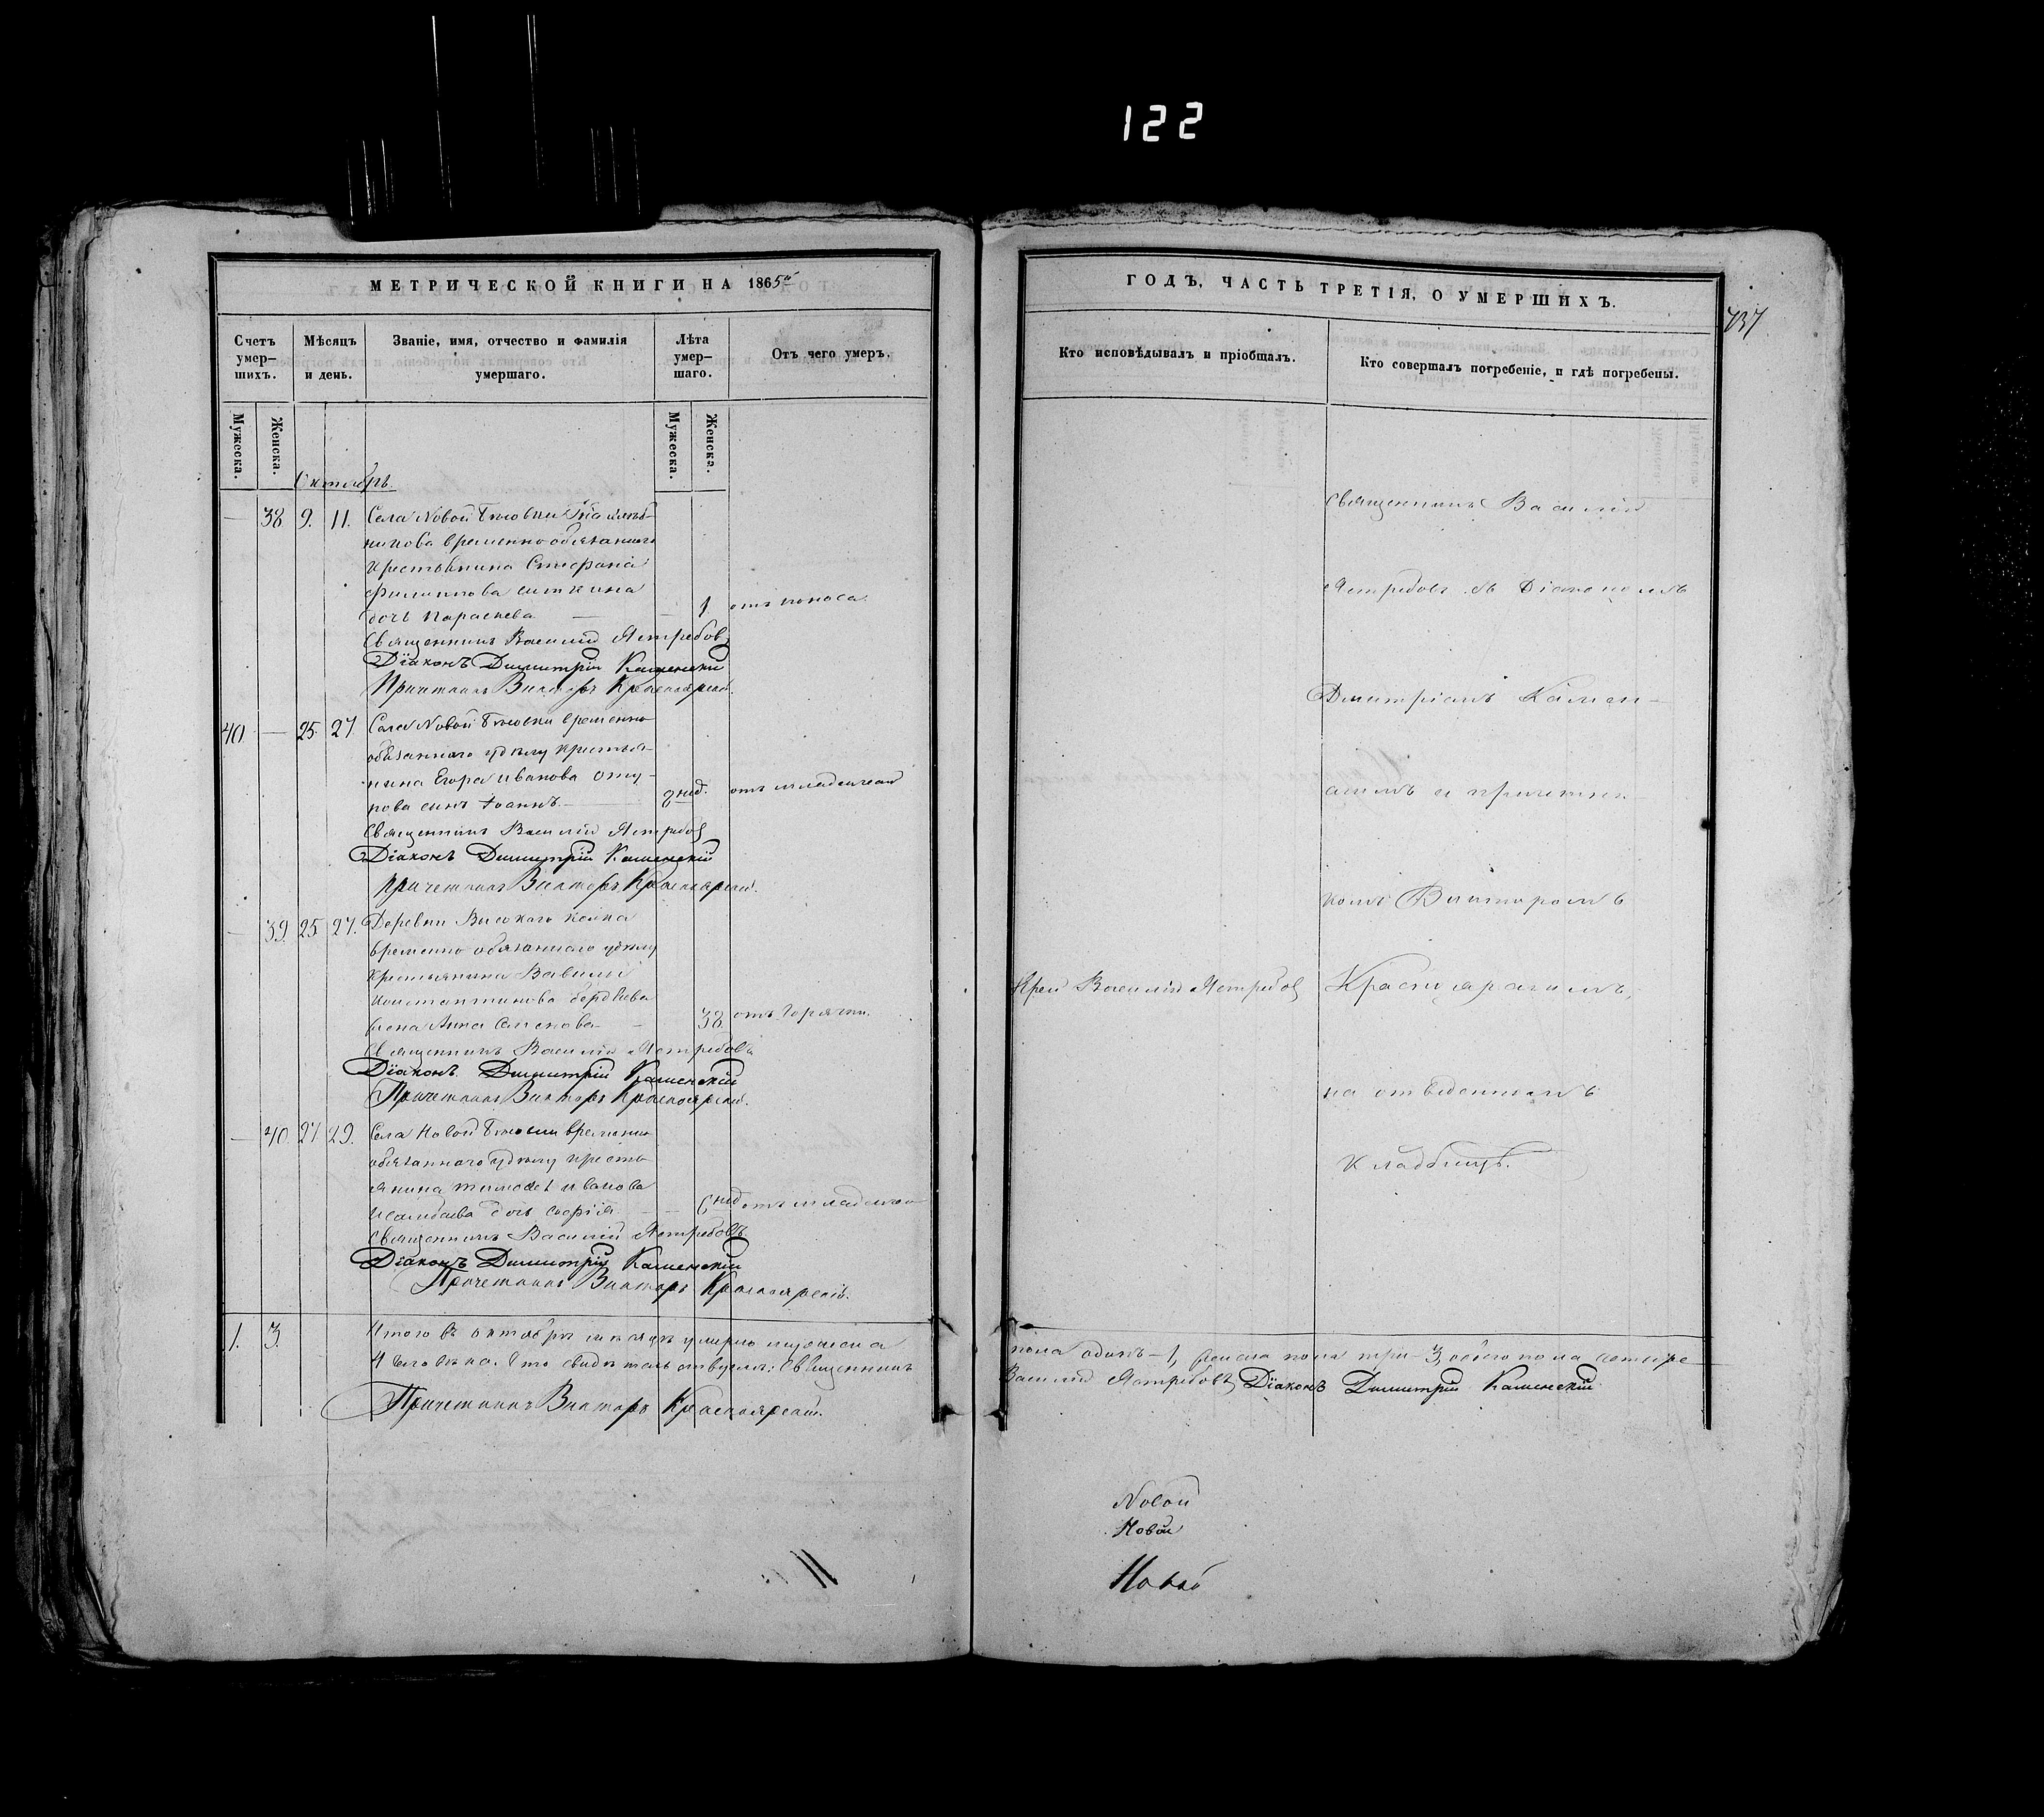 122
МЕТРИЧЕСКОЙ КНИГИ НА 1865й
ГОДЪ, ЧАСТЬ ТРЕТІЯ, О УМЕРШИХЪ.
737
Счетъ умер-
шихъ.
Мѣсяцъ
и день.
Званіе, имя, отчество и фамилія
умершаго.
Лѣта
умер-
шаго.
Отъ чего умеръ.
Кто исповѣдывалъ и пріобщалъ.
Кто совершалъ погребеніе, и гдѣ погребены.
Мужеска.
Женска.
Мужеска.
Женска.
Октябрь.
— 38 9. 11. Села Новой
временно обязаннаго
крестьянина Стефана
Филиппова
дочь Параскева — 1 отъ поноса
Священникъ Василій Ястребовъ
Діаконъ Димитрій Каменскій
Причетникъ Викторъ Красноярскій.
40 — 25. 27 Села Новой временно
обязаннаго удѣлу крестья-
нина Егора Иванова
сынъ Іоаннъ — 2 нед. отъ младенческой
Священникъ Василій Ястребовъ
Діаконъ Димитрій Каменскій
Причетникъ Викторъ Красноярскій.
— 39. 25 27. Деревни
временно обязаннаго удѣлу
крестьянина Вавилы
Константинова
жена Анна — 38. отъ горячки.
Священникъ Василій Ястребовъ
Діаконъ Димитрій Каменскій
Причетникъ Викторъ Красноярскій.
— 40. 27 29. Села Новой временно
обязаннаго удѣлу кресть
янина Тимофея Иванова
дочь Софія — нед. отъ младенческой
Священникъ Василій Ястребовъ
Діаконъ Димитрій Каменскій
Причетникъ Викторъ Красноярскій.
Священникъ Василій
Ястребовъ съ Діакономъ
Димитріемъ Камен-
скимъ и причетни-
комъ Викторомъ
Іерей Василій Ястребовъ
Красноярскимъ,
на отведенномъ
кладбищѣ.
1. 3. Итого въ октябрѣ мѣсяцѣ умерло мужеска
пола одинъ — 1, женска пола три — 3, обоего пола четыре
4 человѣка. Въ томъ свидѣтельствуемъ: Священникъ
Василій Ястребовъ Діаконъ Димитрій Каменскій
Причетникъ Викторъ Красноярскій.
Новой
Новой
Новой